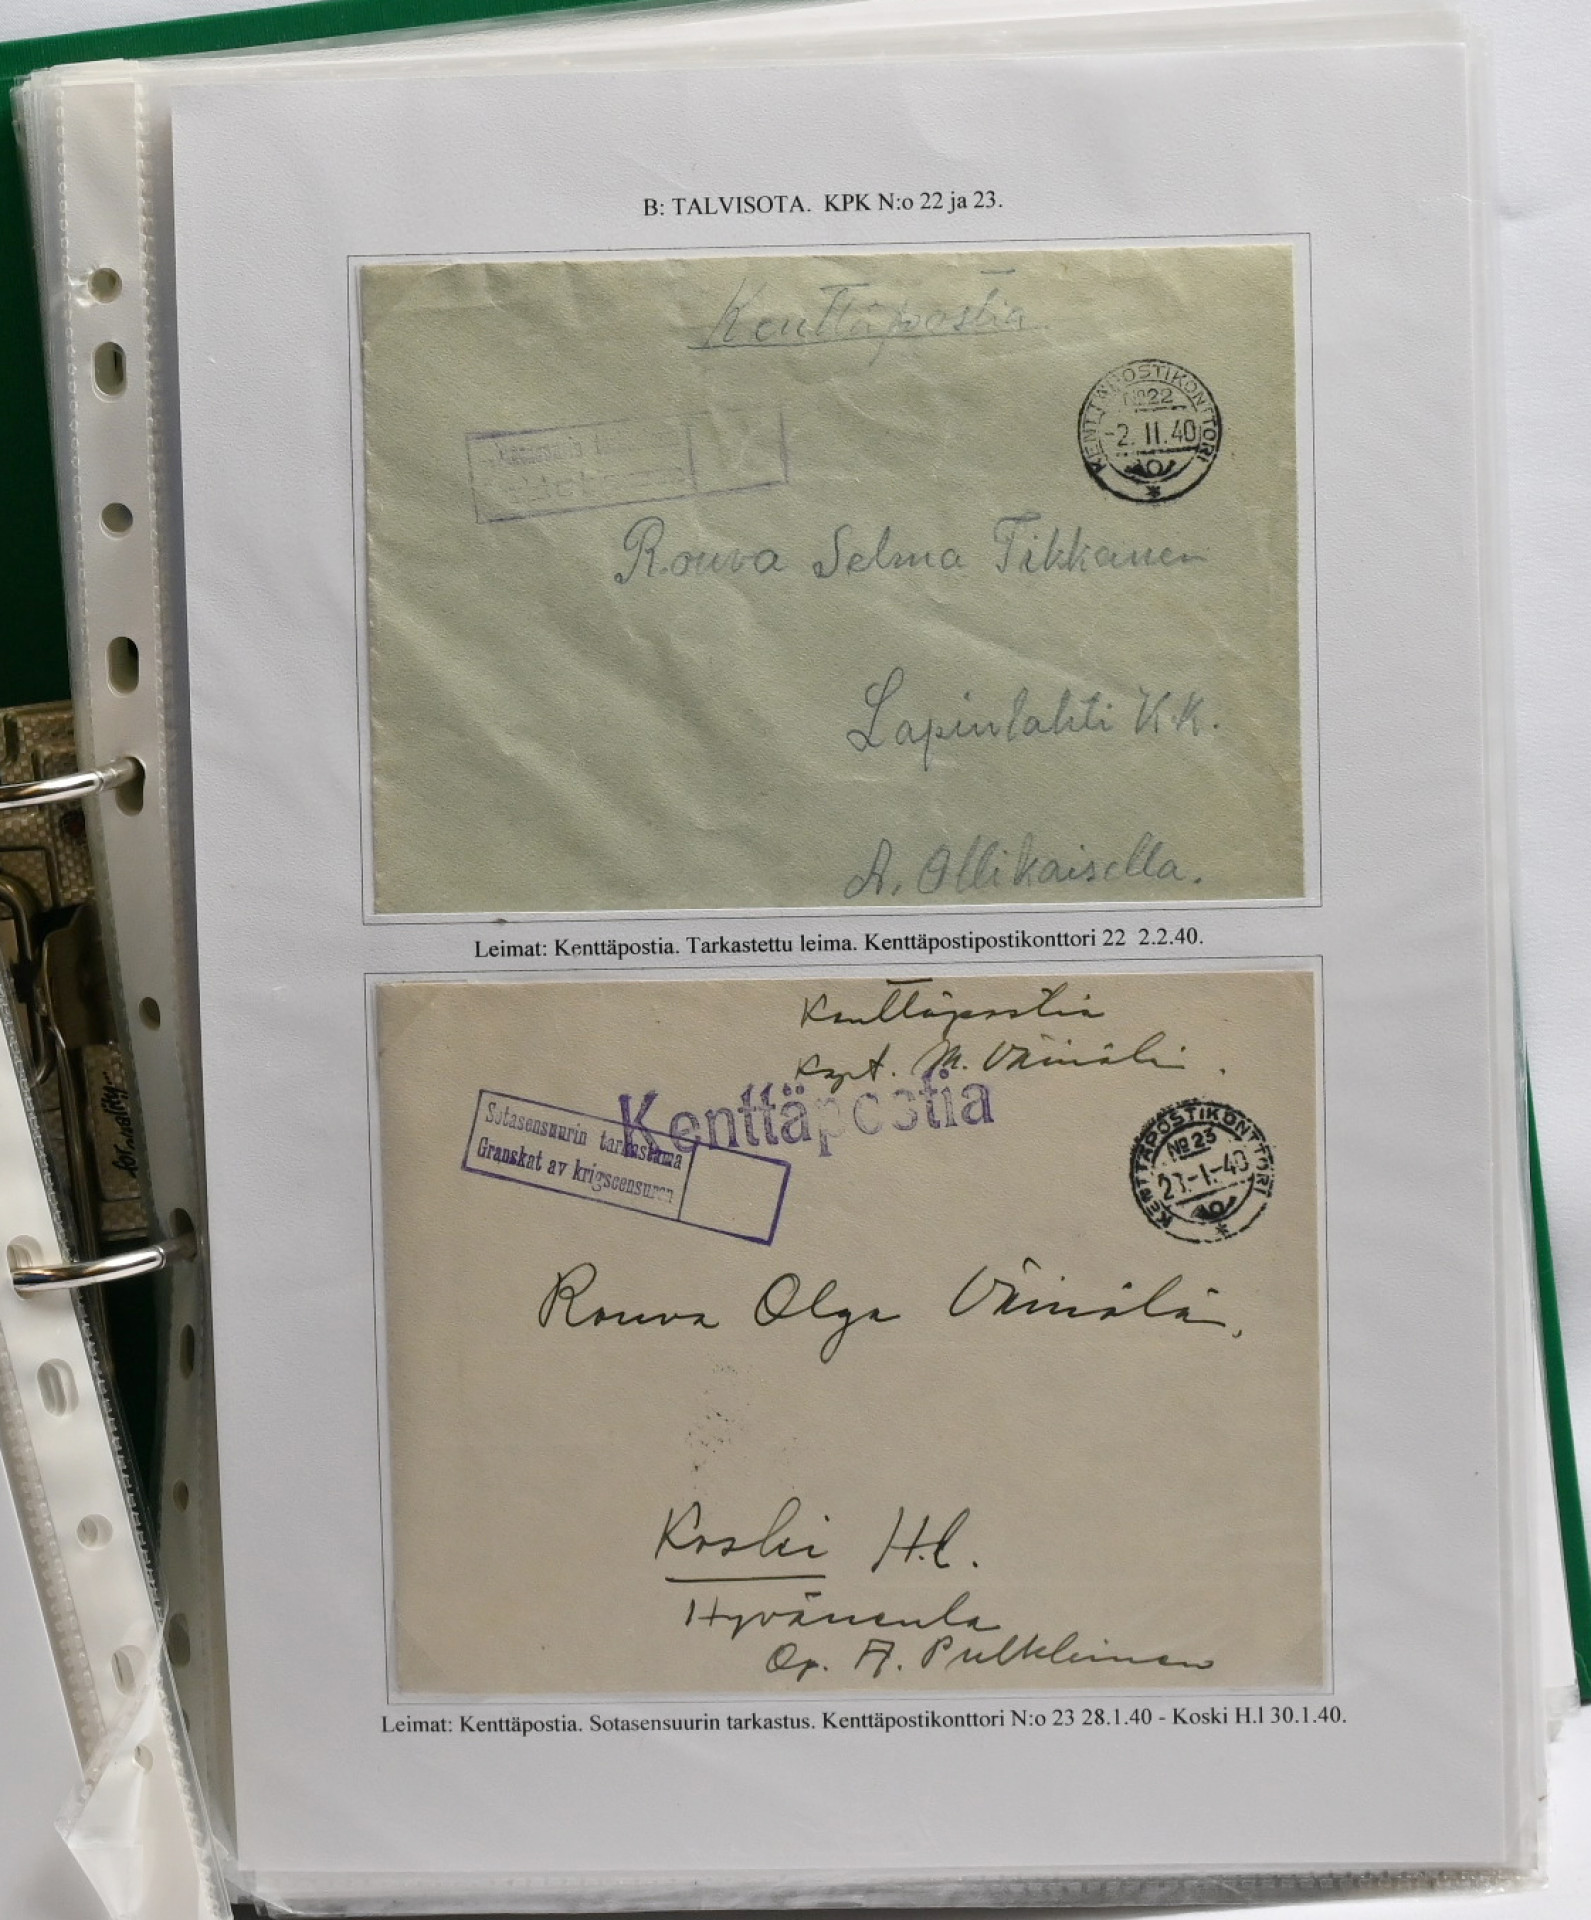 B: TALVISOTA. KPK N:o 22 ja 23.
Kenttäpostia
KENTTÄPOSTIKONTTORI
No 22
-2. II. 40
Rouva Selma Tikkanen
Lapinlahti K.K.
A. Ollikaisella.
Leimat: Kenttäpostia. Tarkastettu leima. Kenttäpostipostikonttori 22 2.2.40.
Kenttäpostia
Kapt. M. Väinälä
Kenttäpostia
Sotasensuurin tarkastama
Granskat av krigscensuren
KENTTÄPOSTIKONTTORI
No 23
-I.-40
Rouva Olga Väinälä,
Koski H.l.
Hyväneula
Op. A. Pulkkinen
Leimat: Kenttäpostia. Sotasensuurin tarkastus. Kenttäpostikonttori N:o 23 28.1.40 - Koski H.l 30.1.40.